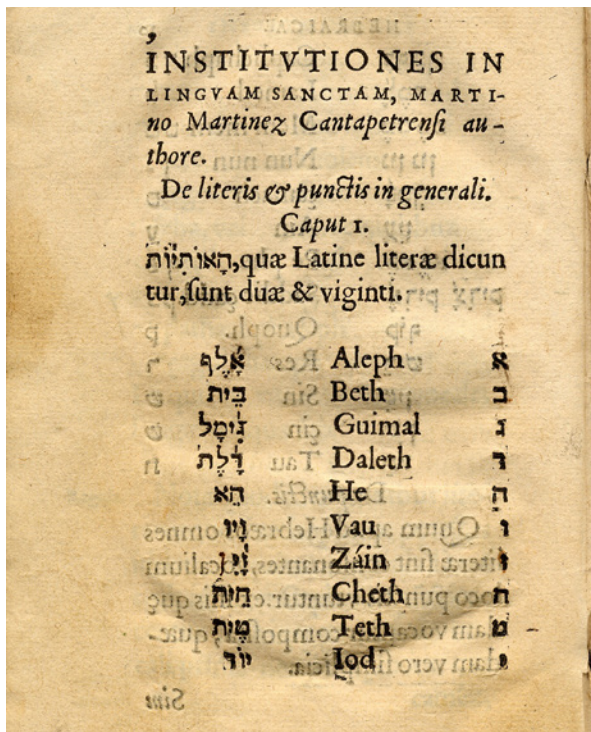 INSTITVTIONES IN
LINGVAM SANCTAM, MARTI-
no Martinez Cantapetrensi au-
thore.
De literis & punctis in generali.
Caput 1.
הָאוֹתִיּוֹת, quæ Latine literæ dicun
tur, sunt duæ & viginti.
אָלֶף Aleph א
בֵּית Beth ב
גִימָל Guimal ג
דָלֶת Daleth ד
הֵא He ה
וָיו Vau ו
זַיִן Záin ז
חֵית Cheth ח
טֵית Teth ט
יוֹד Iod י